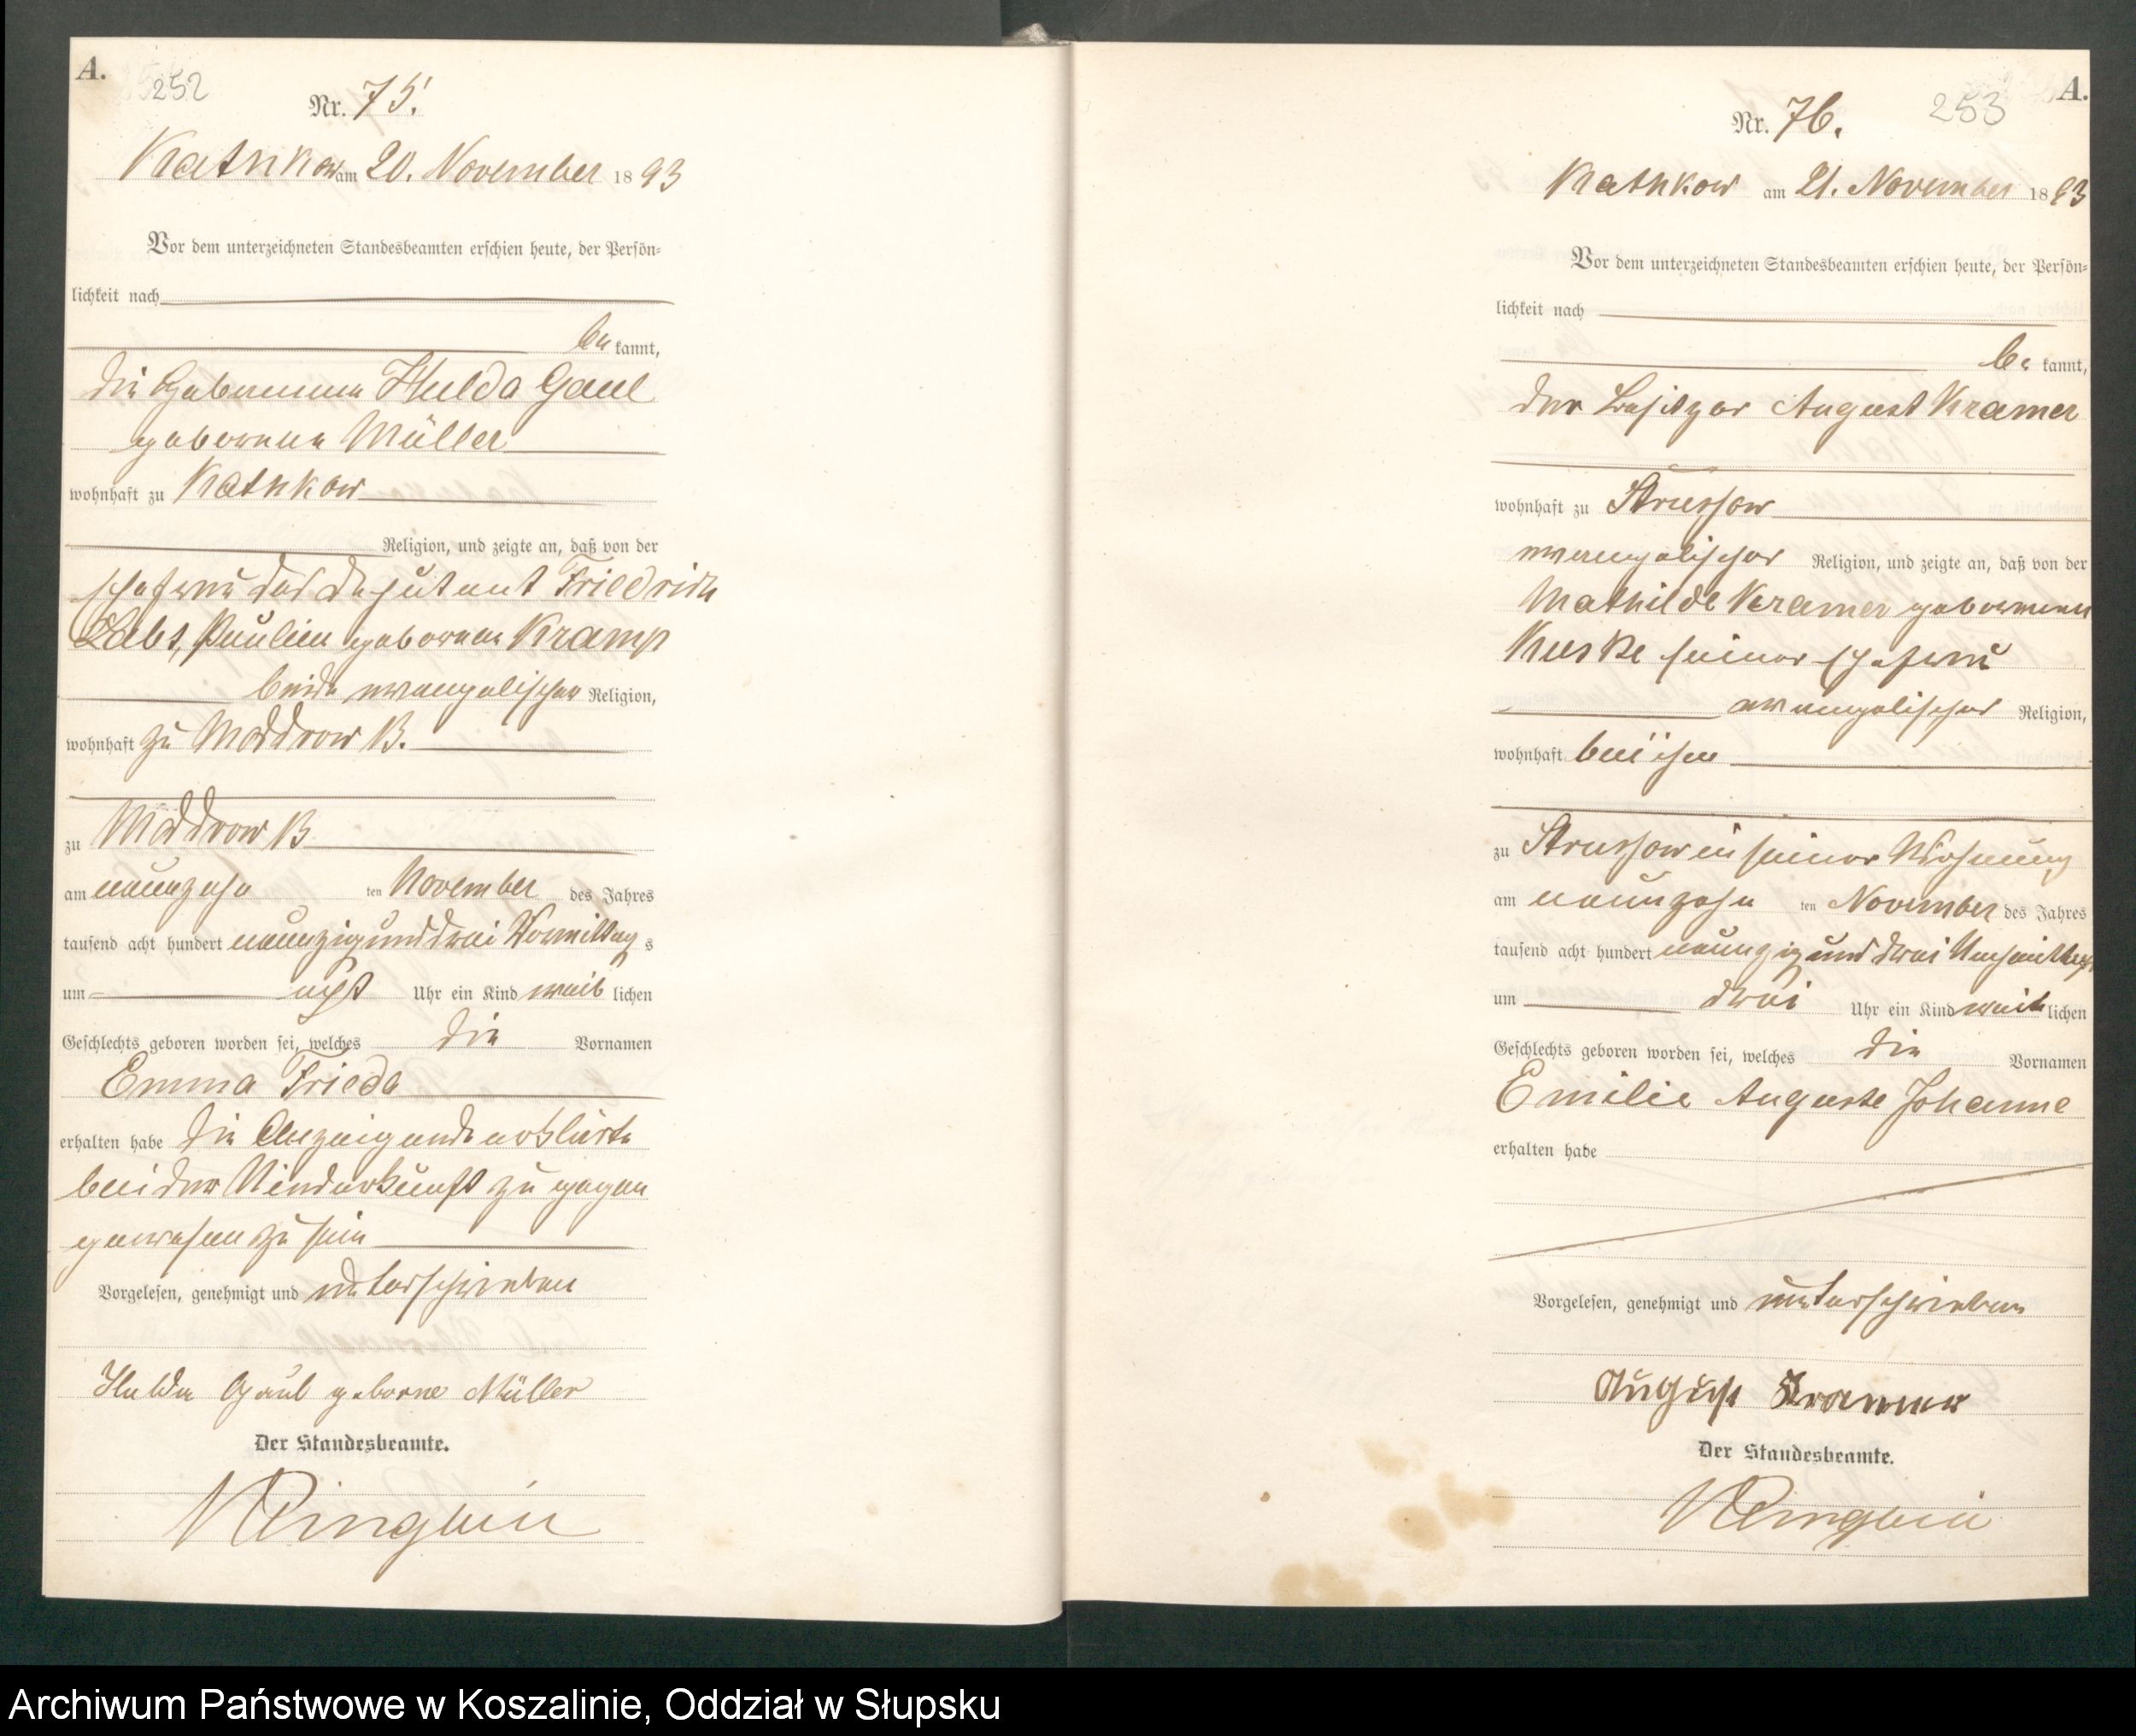 A.
252
Nr. 75.
Kathkow am 20. November 1893
Vor dem unterzeichneten Standesbeamten erschien heute, der Persön=
lichkeit nach
be kannt,
die Hebamme Hulda Gaul
geborene Müller
wohnhaft zu Kathkow
Religion, und zeigte an, daß von der
Ehefrau des Deputant Friedrich
Labs, Pauline geborene Kramp
beide evangelischer Religion,
wohnhaft zu Moddrow B.
zu Moddrow B
am neunzehn ten November des Jahres
tausend acht hundert neunzig und drei Vormittag s
um acht Uhr ein Kind weib lichen
Geschlechts geboren worden sei, welches die Vornamen
Emma Frieda
erhalten habe die Anzeigende erklärte
bei der Niederkunft zu gegen
gewesen zu sein
Vorgelesen, genehmigt und unterschrieben
Hulda Gaul geborne Müller
Der Standesbeamte.
A.
253
Nr. 76.
Kathkow am 21. November 1893
Vor dem unterzeichneten Standesbeamten erschien heute, der Persön=
lichkeit nach
be kannt,
der Besitzer August Kramer
wohnhaft zu Strussow
evangelischer Religion, und zeigte an, daß von der
Mathilde Kramer geborenen
Kuske seiner Ehefrau
evangelischer Religion,
wohnhaft bei ihm
zu Strussow in seiner Wohnung
am neunzehn ten November des Jahres
tausend acht hundert neunzig und drei Nachmittags
um drei Uhr ein Kind weib lichen
Geschlechts geboren worden sei, welches die Vornamen
Emilie Auguste Johanne
erhalten habe
Vorgelesen, genehmigt und unterschrieben
August Kramer
Der Standesbeamte.
Archiwum Państwowe w Koszalinie, Oddział w Słupsku